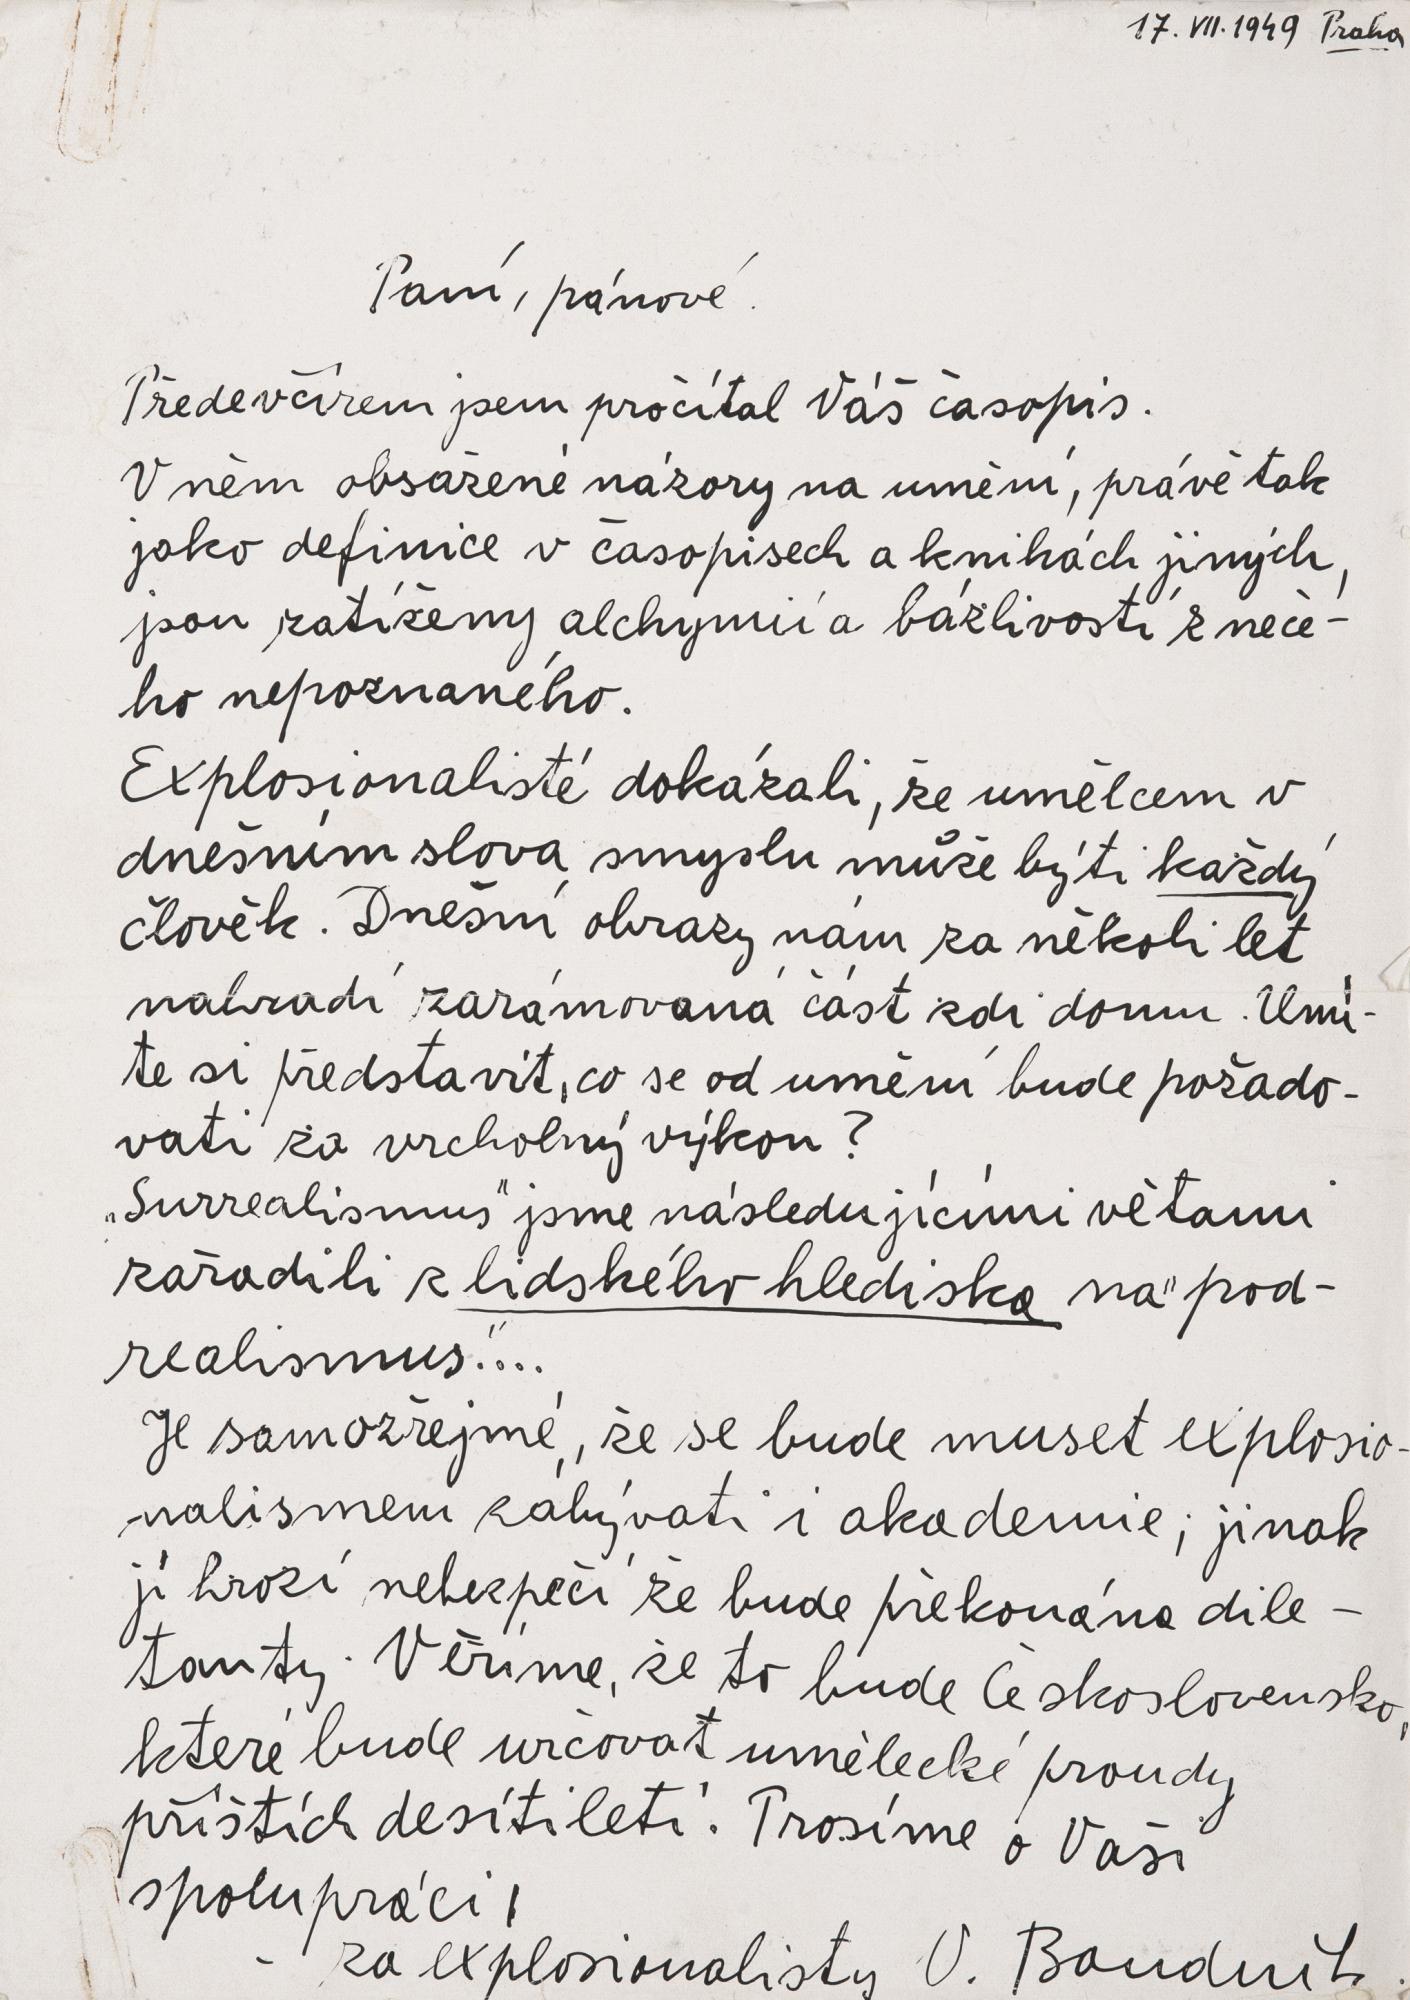 17. VII. 1949 Praha
Paní, pánové.
Předevčírem jsem pročítal Váš časopis.
V něm obsažené názory na umění, právě tak
jako definice v časopisech a knihách jiných,
jsou zatíženy alchymií a bázlivostí z něče-
ho nepoznaného.
Explosionalisté dokázali, že umělcem v
dnešním slova smyslu může býti každý
člověk. Dnešní obrazy nám za několi let
nahradí zarámovaná část zdi domu. Umí-
te si představit, co se od umění bude požado-
vati za vrcholný výkon?
„Surrealismus" jsme následujícími větami
zařadili z lidského hlediska na "pod-
realismus"....
Je samozřejmé, že se bude muset explosio-
nalismem zabývati i akademie; jinak
jí hrozí nebezpečí že bude překonána dile-
tanty. Věříme, že to bude Československo,
které bude určovat umělecké proudy
příštích desítiletí. Prosíme o Vaši
spolupráci!
- za explosionalisty V. Boudník.